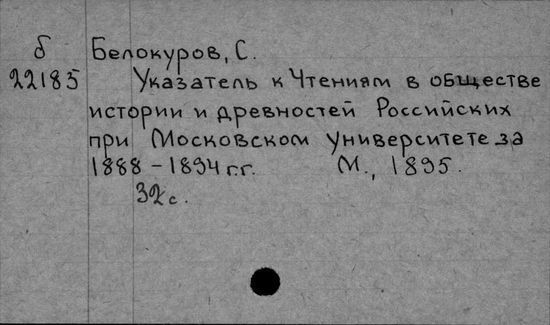 б Белокуров, С.
22185 Указатель к Чтениям в обществе
истории и древностей Российских
при Московском университете за
1888-1894 г.г. М., 1895.
32 с.